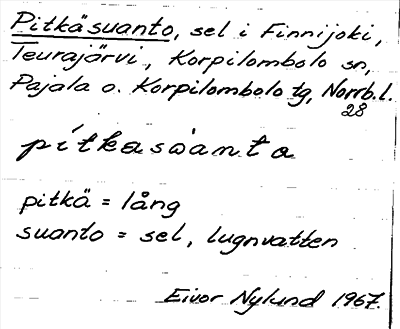 Pitkäsuanto, sel i Finnijoki,
Teurajärvi, Korpilombolo sn,
Pajala o. Korpilombolo tg, Norrb.l.
28
pítkasὰanta
pitkä = lång
suanto = sel, lugnvatten
Eivor Nylund 1967.